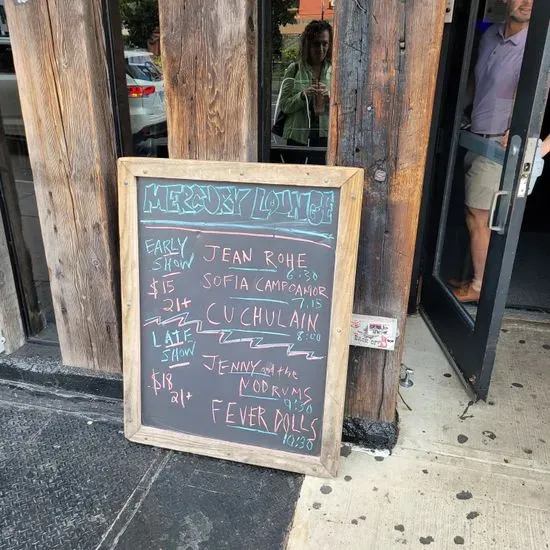 MERCURY LOUNGE
EARLY SHOW
$15
21+
JEAN ROHE
6:30
SOFIA CAMPOAMOR
7:15
CU CHULAIN
8:00
LATE SHOW
$18
21+
JENNY and the
NODRUMS
9:30
FEVER DOLLS
10:30